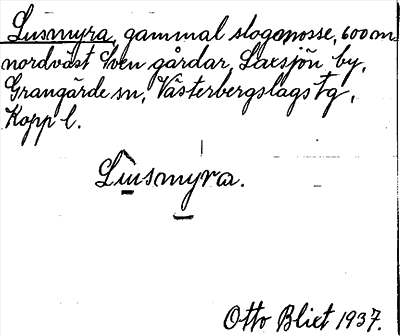 Lusmyra, gammal slogmosse, 600 m
nordväst Sven gårdar, Laxsjön by,
Grangärde sn, Västerbergslags tg,
Kopp l.
Lusmyra.
Otto Blixt 1937.